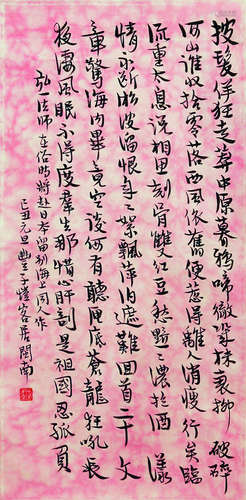 披髮佯狂走莽中原暮鴉啼徹幾株衰柳破碎
河山誰收拾零落西風依舊便惹得離人消瘦行矣臨
流重太息說相思刻骨雙紅豆愁黯々濃於酒漾
情不斷淞波溜恨年々絮飄萍泊遮難回首二十文
章驚海內畢竟空談何有聽匣底蒼龍狂吼長
夜淒風眠不得度羣生那惜心肝剖是祖國忍孤負
弘一法師在俗時將赴日本留別海上同人作
己丑元旦豐子愷客居閩南